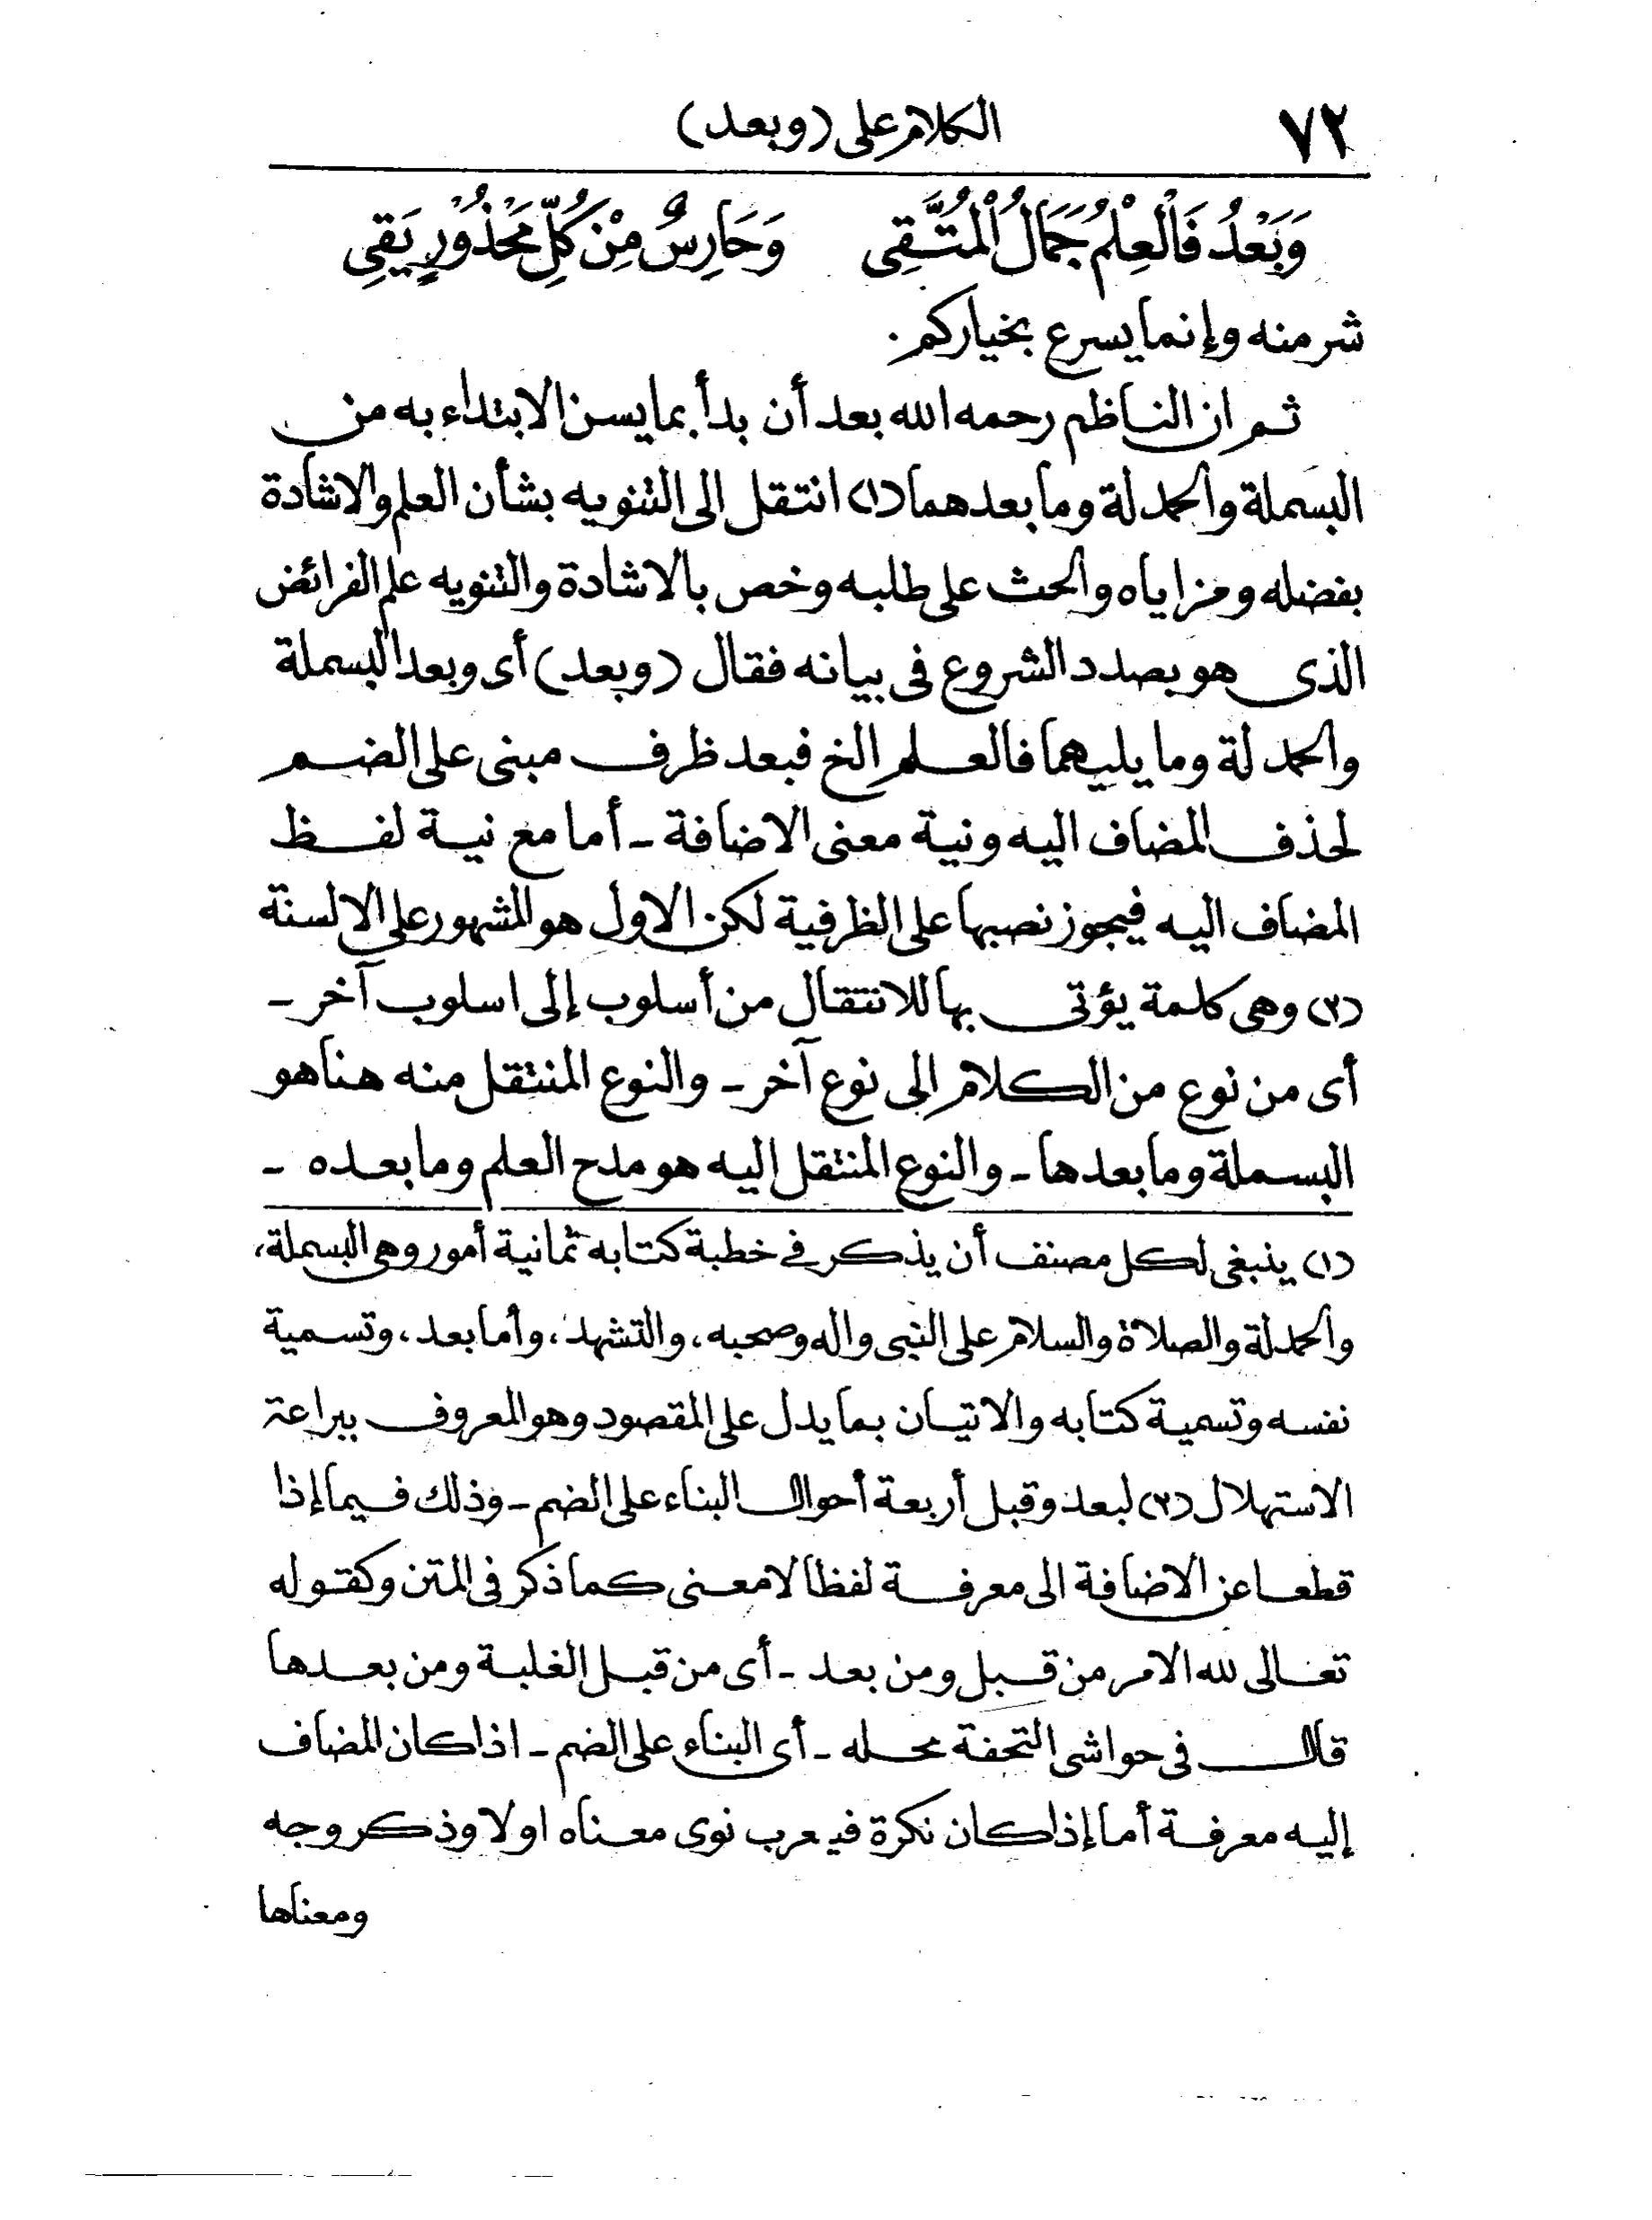 ٧٢
الكلام على (وبعد)
وَبَعْدُ فَالْعِلْمُ جَمَالُ الْمُتَّقِى وَحَارِسٌ مِنْ كُلِّ مَحْذُوْرٍ يَقِى
شر منه وإنما يسرع بخياركم .
ثم ان الناظم رحمه الله بعد أن بدأ بما يسن الابتداء به من
البسملة والحمدلة وما بعدهما (١) انتقل الى التنويه بشأن العلم والاشادة
بفضله ومزاياه والحث على طلبه وخص بالاشادة والتنويه علم الفرائض
الذى هو بصدد الشروع فى بيانه فقال (وبعد) أى وبعد البسملة
والحمدلة وما يليهما فالعلم الخ فبعد ظرف مبنى على الضم
لحذف المضاف اليه ونية معنى الاضافة - أما مع نية لفظ
المضاف اليه فيجوز نصبها على الظرفية لكن الاول هو المشهور على الالسنة
(٢) وهى كلمة يؤتى بها للانتقال من أسلوب إلى اسلوب آخر -
أى من نوع من الكلام الى نوع آخر - والنوع المنتقل منه هنا هو
البسملة وما بعدها - والنوع المنتقل اليه هو مدح العلم وما بعده -
(١) ينبغى لكل مصنف أن يذكر فى خطبة كتابه ثمانية أمور وهى البسملة،
والحمدلة والصلاة والسلام على النبى واله وصحبه، والتشهد، وأما بعد، وتسمية
نفسه وتسمية كتابه والاتيان بما يدل على المقصود وهو المعروف ببراعة
الاستهلال (٢) لبعد وقبل أربعة أحوال البناء على الضم - وذلك فيما إذا
قطعا عن الاضافة الى معرفة لفظا لا معنى كما ذكر فى المتن وكقوله
تعالى لله الامر من قبل ومن بعد - أى من قبل الغلبة ومن بعدها
قال فى حواشى التحفة محله - أى البناء على الضم - اذا كان المضاف
إليه معرفة أما إذا كان نكرة فيعرب نوى معناه اولا وذكر وجه
ومعناها